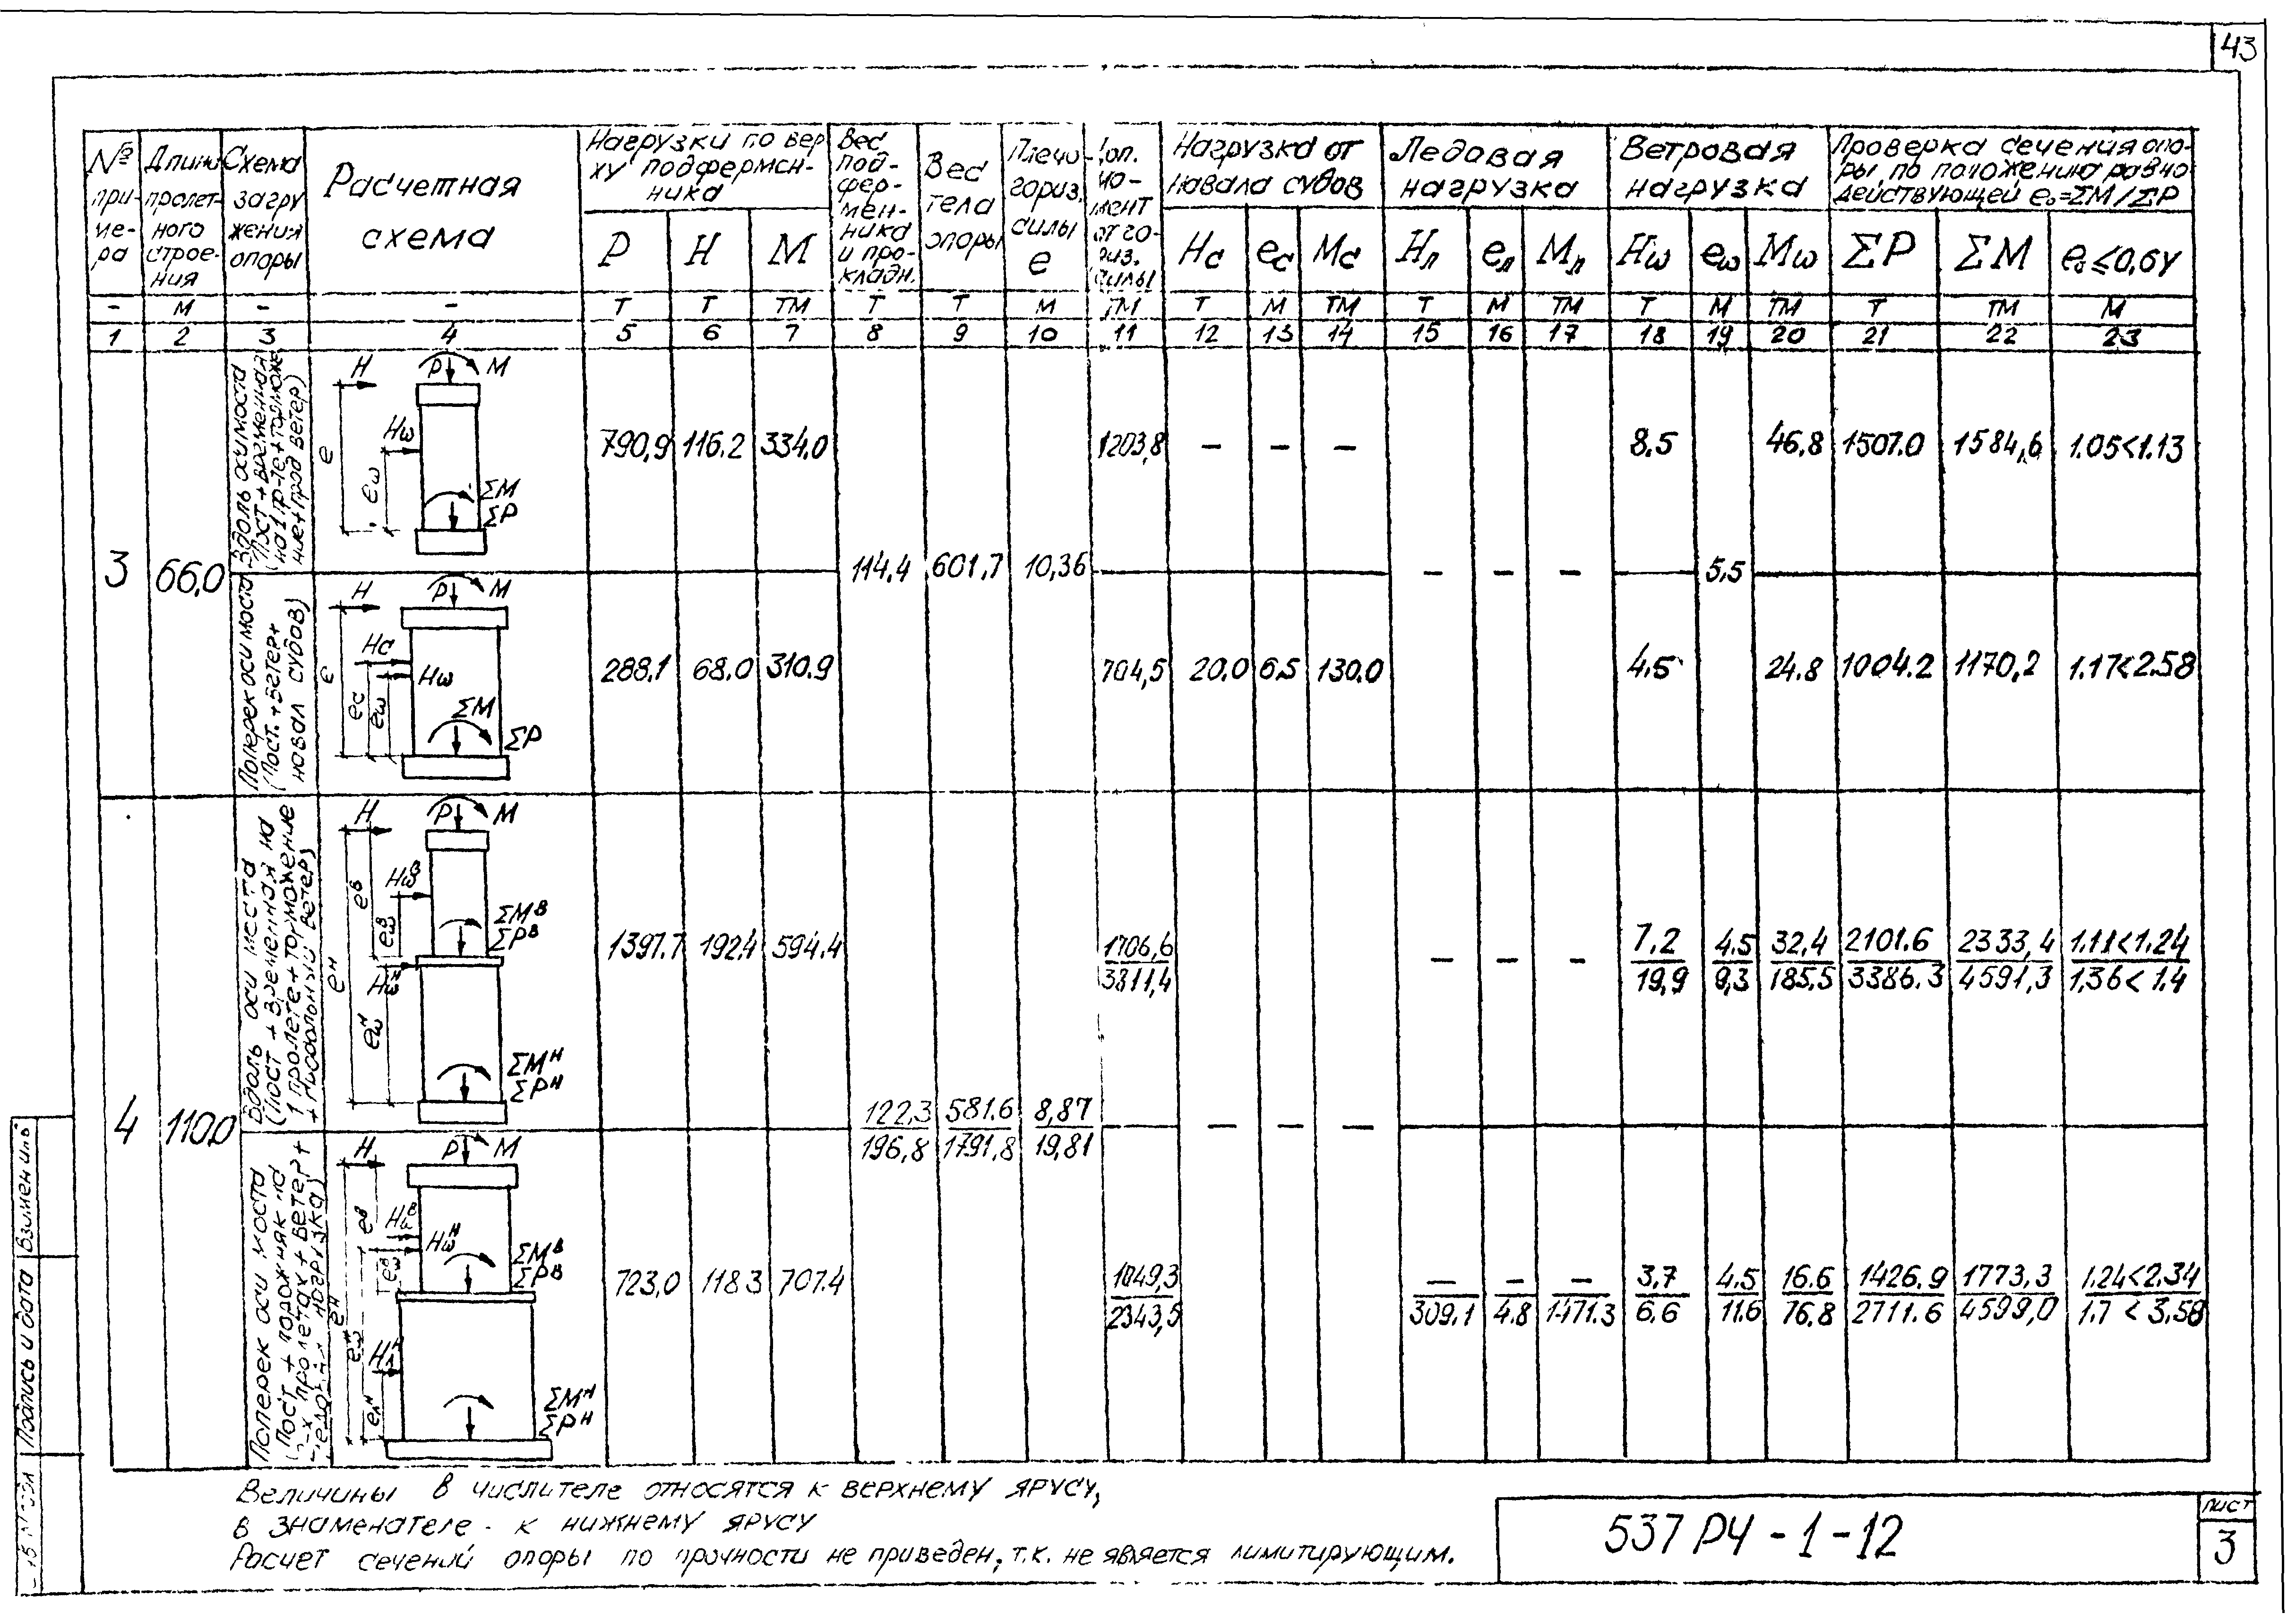 43
№ при- ме- ра
Длина пролет- ного строе- ния
Схема загру жения опоры
Расчетная схема
Нагрузки по вер ху подфермен- ника
Р Н М
Вес под- фер- мен- ника и про- кладн.
Вес тела опоры
Плечо гориз. силы е
мо- мент от го- риз. силы
Нагрузка от навала судов
Нс ес Мс
Ледовая нагрузка
Нл ел Мл
Ветровая нагрузка
Нω еω Мω
Проверка сечения опо- ры по положению равно действующей е₀=ΣМ/ΣР
ΣР ΣМ е₀≤0,6У
- М - - Т Т ТМ Т Т М ТМ Т М ТМ Т М ТМ Т М ТМ Т ТМ М
1 2 3 4 5 6 7 8 9 10 11 12 13 14 15 16 17 18 19 20 21 22 23
3 66,0
Вдоль оси моста
(Пост + временная
на 1 пр-те + торможе
ние + прод ветер)
Н Р М
Нω
е еω
ΣМ
ΣР
790,9 116.2 334.0 1203,8 – – – 8.5 46.8 1507.0 1584,6 1.05<1.13
114.4 601.7 10,36 – – – 5,5
Поперек оси моста
(Пост. + ветер +
навал судов)
Н Р М
Нс
Нω
е ес еω
ΣМ
ΣР
288.1 68.0 310.9 704,5 20.0 6.5 130.0 4.5 24.8 1004.2 1170,2 1.17<2.58
4 110,0
Вдоль оси моста
(Пост + временная на
1 пролете + торможение
+ продольный ветер)
Н Р М
Нωᴮ
еᴮ еωᴮ
ΣМᴮ
ΣРᴮ
Нωᴴ
еᴴ еωᴴ
ΣМᴴ
ΣРᴴ
1397.7 192.4 594.4 1706,6/3811,4 – – – 7.2/19,9 4.5/9,3 32,4/185,5 2101.6/3386.3 2333,4/4591,3 1.11<1.24/1,36<1.4
122,3/196,8 581.6/1791,8 8,87/19,81 – – –
Поперек оси моста
(Пост + порожняк на
2-х пролетах + ветер +
ледовая нагрузка)
Н Р М
Нωᴮ
Нωᴴ
еᴮ еωᴮ
ΣМᴮ
ΣРᴮ
еᴴ еωᴴ
Нлᴴ
елᴴ
ΣМᴴ
ΣРᴴ
723,0 118.3 707.4 1049,3/2343,5 –/309,1 –/4.8 –/1471.3 3,7/6.6 4.5/11.6 16.6/76.8 1426.9/2711.6 1773,3/4599,0 1.24<2.34/1.7<3,58
Величины в числителе относятся к верхнему ярусу,
в знаменателе - к нижнему ярусу
Расчет сечений опоры по прочности не приведен, т.к. не является лимитирующим.
537РЧ-1-12
лист
3
Взамен инв
Подпись и дата